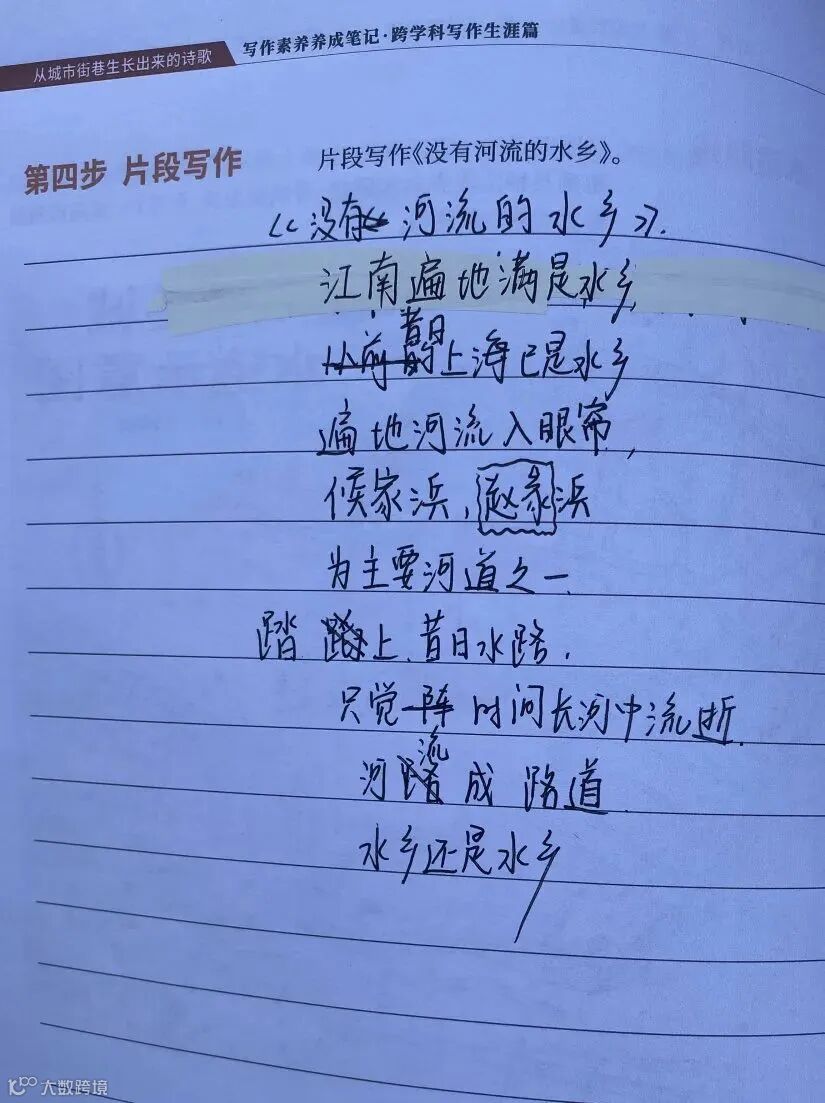 从城市街巷生长出来的诗歌
写作素养养成笔记·跨学科写作生涯篇
第四步 片段写作
片段写作《没有河流的水乡》。
《没有河流的水乡》.
江南遍地满是水乡
昔日
上海已是水乡
遍地河流入眼帘,
候家浜,赵家浜
为主要河道之一.
踏上.昔日水路,
只觉一阵时间长河中流逝.
流
河成路道
水乡还是水乡
大数跨境